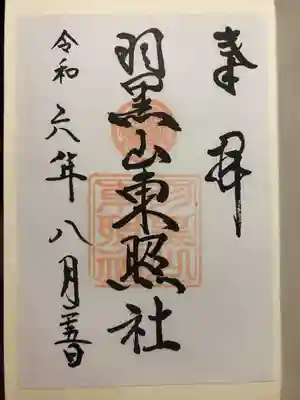 奉拝
羽黒山東照社
令和六年八月日